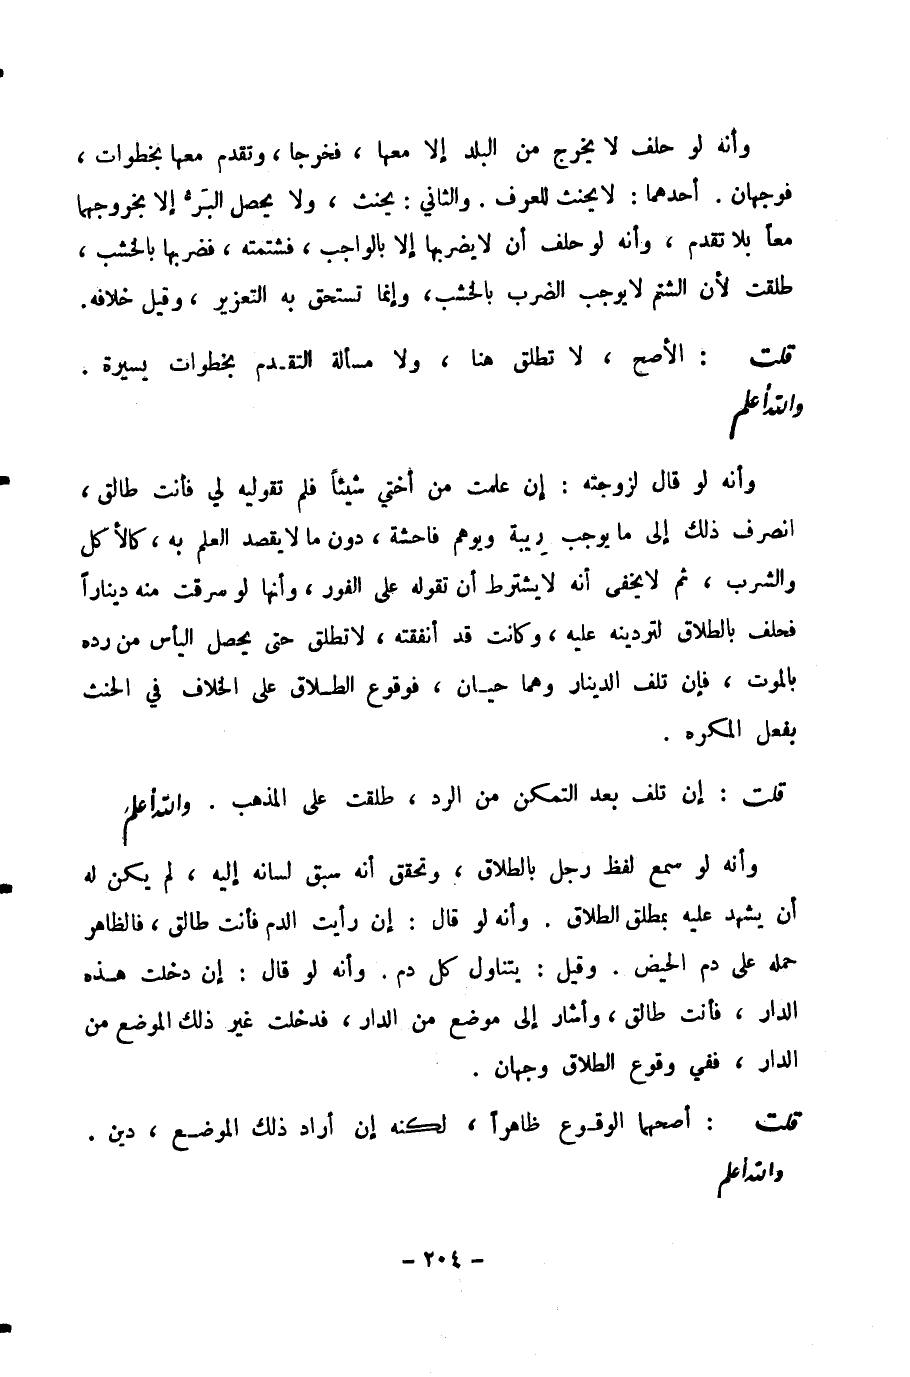 وأنه لو حلف لا يخرج من البلد إلا معها ، فخرجا ، وتقدم معها بخطوات ،
فوجهان . أحدهما : لا يحنث للعرف . والثاني : يحنث ، ولا يحصل البَرُّ إلا بخروجها
معاً بلا تقدم ، وأنه لو حلف أن لا يضربها إلا بالواجب ، فشتمته ، فضربها بالخشب ،
طلقت لأن الشتم لا يوجب الضرب بالخشب، وإنما تستحق به التعزير ، وقيل خلافه.
قلت : الأصح ، لا تطلق هنا ، ولا مسألة التقدم بخطوات يسيرة .
والله أعلم
وأنه لو قال لزوجته : إن علمت من أختي شيئاً فلم تقوليه لي فأنت طالق ،
انصرف ذلك إلى ما يوجب ريبة ويوهم فاحشة ، دون ما لا يقصد العلم به ، كالأكل
والشرب ، ثم لا يخفى أنه لا يشترط أن تقوله على الفور ، وأنها لو سرقت منه ديناراً
فحلف بالطلاق لتردينه عليه ، وكانت قد أنفقته ، لا تطلق حتى يحصل اليأس من رده
بالموت ، فإن تلف الدينار وهما حيـان ، فوقوع الطـلاق على الخلاف في الحنث
بفعل المكره .
قلت : إن تلف بعد التمكن من الرد ، طلقت على المذهب . والله أعلم
وأنه لو سمع لفظ رجل بالطلاق ، وتحقق أنه سبق لسانه إليه ، لم يكن له
أن يشهد عليه بمطلق الطلاق . وأنه لو قال : إن رأيت الدم فأنت طالق ، فالظاهر
حمله على دم الحيض . وقيل : يتناول كل دم . وأنه لو قال : إن دخلت هـذه
الدار ، فأنت طالق ، وأشار إلى موضع من الدار ، فدخلت غير ذلك الموضع من
الدار ، ففي وقوع الطلاق وجهان .
قلت : أصحها الوقـوع ظاهراً ، لكنه إن أراد ذلك الموضـع ، دين .
والله أعلم
- ٢٠٤ -